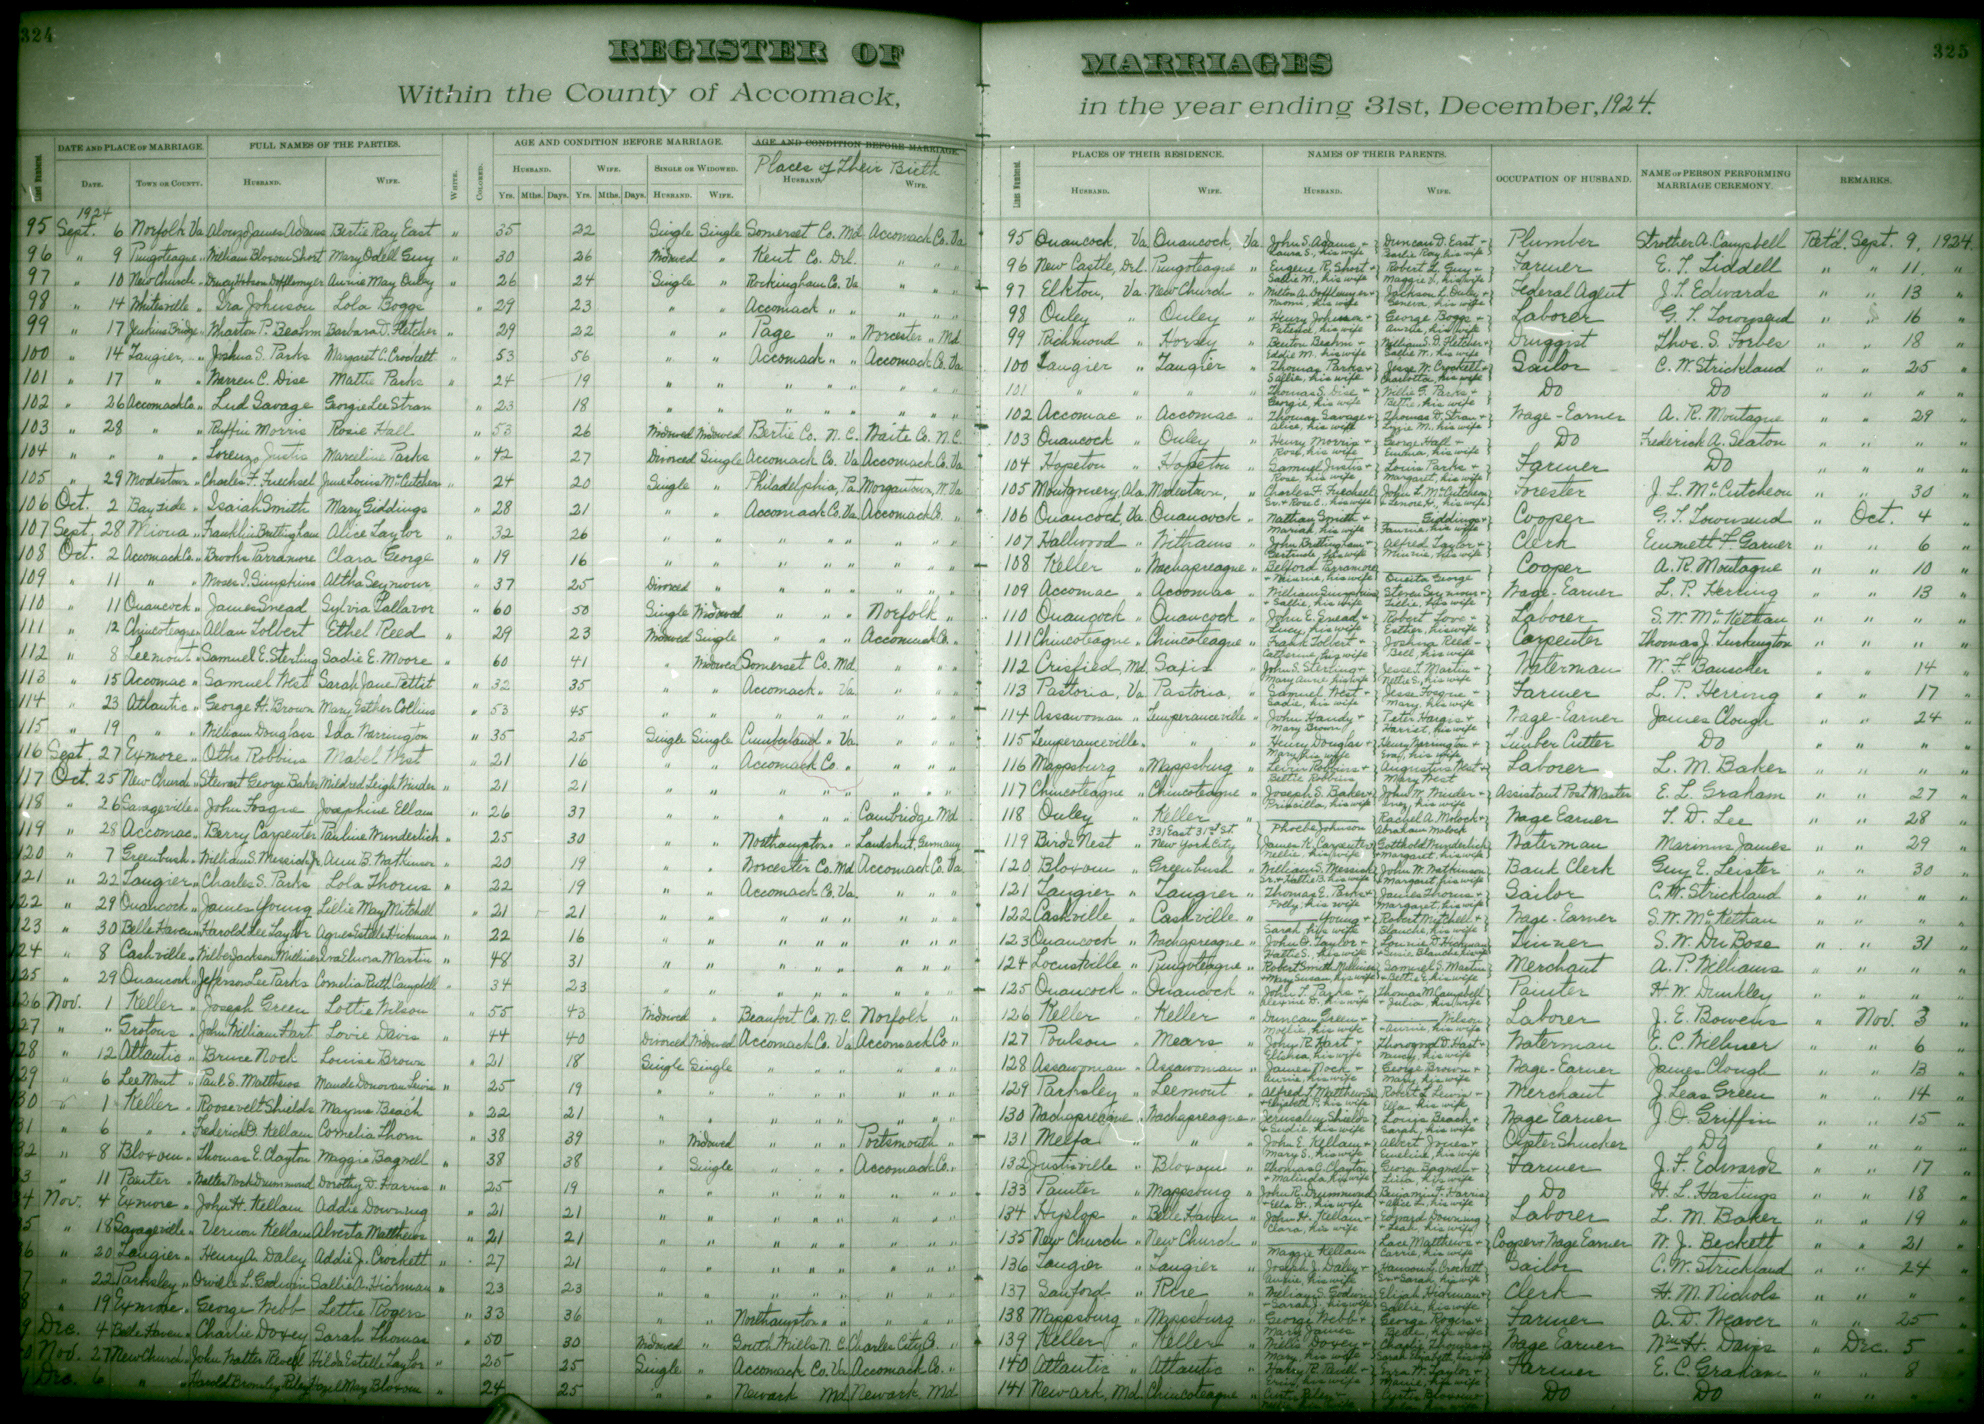 324
REGISTER OF MARRIAGES
325
Within the County of Accomack, in the year ending 31st, December, 1924.
DATE AND PLACE OF MARRIAGE. FULL NAMES OF THE PARTIES. AGE AND CONDITION BEFORE MARRIAGE. AGE AND CONDITION BEFORE MARRIAGE.
Places of Their Birth
Line Number. DATE. TOWN OR COUNTY. HUSBAND. WIFE. WHITE. COLORED. HUSBAND. WIFE. SINGLE OR WIDOWED. HUSBAND. WIFE.
Yrs. Mths. Days. Yrs. Mths. Days. HUSBAND. WIFE.
1924
95 Sept. 6 Norfolk Va Alonzo James Adams Bertie Ray East " 35 22 Single Single Somerset Co. Md. Accomack Co. Va.
96 " 9 Pungoteague " William Bloxom Short Mary Odell Guy " 30 26 Widowed " Kent Co. Del. " " "
97 " 10 New Church " Annie May Ouley " 26 24 Single " Rockingham Co. Va " " "
98 " 14 Whitesville " Ira Johnson Lola Boggs " 29 23 " " Accomack " " " " "
99 " 17 Jenkins Bridge " Wharton P. Beahm Barbara D. Fletcher " 29 22 " " Page " " Worcester " Md
100 " 14 Tangier, " Joshua S. Parks Margaret C. Crockett " 53 56 " " Accomack " " Accomack Co. Va
101 " 17 " " Warren C. Dise Mattie Parks " 24 19 " " " " " " " "
102 " 26 Accomack Co. " Lud Savage Georgie Lee Stran " 23 18 " " " " " " " "
103 " 28 " " Ruffin Morris Rosie Hall " 53 26 Widowed Widowed Bertie Co. N. C. Waite Co. N. C.
104 " " " " Lorenzo Justis Marceline Parks " 42 27 Divorced Single Accomack Co. Va Accomack Co. Va
105 " 29 Modestown " Charles F. Fuechsel June Louis McCutcheon " 24 20 Single " Philadelphia, Pa. Morgantown, W. Va
106 Oct. 2 Bayside " Isaiah Smith Mary Giddings " 28 21 " " Accomack Co. Va. Accomack Co. "
107 Sept. 28 Miona " Franklin Brittingham Alice Taylor " 32 26 " " " " " " " "
108 Oct. 2 Accomack Co. " Brooks Parramore Clara George " 19 16 " " " " " " " "
109 " 11 " " Moses J. Simpkins Altha Seymour " 37 25 Divorced " " " " " " "
110 " 11 Onancock " James Snead Sylvia Tallavor " 60 50 Single Widowed " " " Norfolk "
111 " 12 Chincoteague " Allan Tolbert Ethel Reed " 29 23 Widowed Single " " " Accomack Co. "
112 " 8 Leemont " Samuel E. Sterling Sadie E. Moore " 60 41 " Widowed Somerset Co. Md. " " "
113 " 15 Accomac " Samuel West Sarah Jane Pettit " 32 35 " " Accomack " Va. " " "
114 " 23 Atlantic " George H. Brown Mary Esther Collins " 53 45 " " " " " " " "
115 " 19 " " William Douglas Ida Warrington " 35 25 Single Single Cumberland " Va. " " "
116 Sept. 27 Exmore " Otho Robbins Mabel West " 21 16 " " Accomack Co. " " " "
117 Oct. 25 New Church " Stewart George Baker Mildred Leigh Winder " 21 21 " " " " " " " "
118 " 26 Savageville " John Fosque Josephine Ellam " 26 37 " " " " " Cambridge Md
119 " 28 Accomac " Berry Carpenter Pauline Wunderlich " 25 30 " " Northampton " " Landshut, Germany
120 " 7 Greenbush " William S. Messick Jr. Ann B. Watkinson " 20 19 " " Worcester Co. Md Accomack Co. Va.
121 " 22 Tangier " Charles S. Parks Lola Thorns " 22 19 " " Accomack Co. Va. " " "
122 " 29 Onancock " James Young Lillie May Mitchell " 21 21 " " " " " " " "
123 " 30 Belle Haven " Harold Lee Taylor Agnes Estelle Hickman " 22 16 " " " " " " " "
124 " 8 Cashville " Wilbe Jackson Milliner Iva Elnora Martin " 48 31 " " " " " " " "
125 " 29 Onancock " Jefferson Lee Parks Cornelia Ruth Campbell " 34 23 " " " " " " " "
126 Nov. 1 Keller " Joseph Green Lottie Wilson " 55 43 Widowed " Beaufort Co. N. C. Norfolk "
127 " " Grotons " John William Hart Lovie Davis " 44 40 Divorced Widowed Accomack Co. Va Accomack Co. "
128 " 12 Atlantic " Bruce Nock Louise Brown " 21 18 Single Single " " " " " "
129 " 6 Lee Mont " Paul S. Matthews Maude Donovan Lewis " 25 19 " " " " " " " "
130 " 1 Keller " Roosevelt Shields Mayme Beach " 22 21 " " " " " " " "
131 " 6 " " Frederick D. Kellam Cornelia Thom " 38 39 " Widowed " " " Portsmouth "
132 " 8 Bloxom " Thomas E. Clayton Maggie Bagwell " 38 38 " Single " " " Accomack Co. "
133 " 11 Painter " Walter Nock Drummond Dorothy D. Harris " 25 19 " " " " " " " "
134 Nov. 4 Exmore " John H. Kellam Addie Downing " 21 21 " " " " " " " "
135 " 18 Savageville " Vernon Kellam Alverta Matthews " 21 21 " " " " " " " "
136 " 20 Tangier " Henry A. Daley Addie J. Crockett " 27 21 " " " " " " " "
137 " 22 Parksley " Orville L. Godwin Sallie A. Hickman " 23 23 " " " " " " " "
138 " 19 Exmore " George Webb Lettie Rogers " 33 36 " " Northampton " " " " "
139 Dec. 4 Belle Haven " Charlie Doxey Sarah Thomas " 50 30 Widowed " South Mills N. C. Charles City Co. "
140 Nov. 27 New Church " John Walter Revell Hilda Estell Taylor " 25 25 Single " Accomack Co. Va Accomack Co. "
141 Dec. 6 " " Harold Bromley Riley Hazel May Bloxom " 24 25 " " Newark Md Newark Md.
Line Numbers. PLACES OF THEIR RESIDENCE. NAMES OF THEIR PARENTS. OCCUPATION OF HUSBAND. NAME OF PERSON PERFORMING MARRIAGE CEREMONY. REMARKS.
HUSBAND. WIFE. HUSBAND. WIFE.
95 Onancock, Va Onancock, Va. John S. Adams + Laura S., his wife Duncan D. East + Sarlie Ray, his wife Plumber Strother A. Campbell Ret'd. Sept. 9, 1924.
96 New Castle, Del. Pungoteague " Eugene R. Short + Sallie M., his wife Robert L. Guy + Maggie L., his wife Farmer E. T. Liddell " " 11. "
97 Elkton, Va. New Church " Jackson L. Ouley + Federal Agent J. T. Edwards " " 13 "
98 Ouley " Ouley " Henry Johnson + Patience, his wife George Boggs + Annie, his wife Laborer G. T. Townsend " " 16 "
99 Richmond " Horsey " Benton Beahm + Eddie M., his wife William S. D. Fletcher + Sallie M., his wife Druggist Thos. S. Forbes " " 18 "
100 Tangier " Tangier " Thomas Parks + Sallie, his wife Jesse W. Crockett + Charlotte, his wife Sailor C. W. Strickland " " 25 "
101 " " " " Thomas S. Dise + Georgie, his wife Willie G. Parks + Bettie, his wife Do Do " " " "
102 Accomac " Accomac " Thomas Savage + Alice, his wife Thomas D. Stran + Lizzie M., his wife Wage-Earner A. R. Montague " " 29 "
103 Onancock " Ouley " Henry Morris + Rose, his wife George Hall + Emma, his wife Do Frederick A. Seaton " " " "
104 Hopeton " Hopeton " Samuel Justis + Rose, his wife Louis Parks + Margaret, his wife Farmer Do " " " "
105 Montgomery, Ala. Modestown, " Charles F. Fuechsel Sr. + Rose C., his wife John L. McCutcheon + Lenore H., his wife Forester J. L. McCutcheon " " 30 "
106 Onancock, Va. Onancock " Nathan Smith + Mariah, his wife Giddings + Fannie, his wife Cooper G. T. Townsend " Oct. 4 "
107 Hallwood " Withams " John Brittingham + Gertrude, his wife Alfred Taylor + Minnie, his wife Clerk Emmett F. Garner " " 6 "
108 Keller " Wachapreague " Belford Parramore + Minnie, his wife Onesta George Cooper A. R. Montague " " 10 "
109 Accomac " Accomac " William Simpkins + Sallie, his wife Steven Seymour + Lillie, his wife Wage-Earner L. P. Herring " " 13 "
110 Onancock " Onancock " John E. Snead + Lucy, his wife Robert Love + Esther, his wife Laborer S. W. McKethan " " " "
111 Chincoteague " Chincoteague " Frank Tolbert + Catherine, his wife Joshua Reed + Bell, his wife Carpenter Thomas J. Turkington " " " "
112 Crisfield, Md. Saxis " John S. Sterling + Mary Anne, his wife Jesse T. Martin + Nettie S., his wife Waterman W. F. Bauscher " " 14 "
113 Pastoria, Va. Pastoria, " Samuel West + Sadie, his wife Jesse Fosque + Mary, his wife Farmer L. P. Herring " " 17 "
114 Assawoman " Temperanceville " John Handy + Mary Brown Peter Hargis + Harriet, his wife Wage-Earner James Clough " " 24 "
115 Temperanceville " " " Henry Douglas + Mary, his wife Henry Warrington + Eva, his wife Timber Cutter Do " " " "
116 Mappsburg " Mappsburg " Levin Robbins + Bettie Robbins Augustus West + Mary West Laborer L. M. Baker " " " "
117 Chincoteague " Chincoteague " Joseph S. Baker + Priscilla, his wife John W. Winder + Inez, his wife Assistant Post Master E. L. Graham " " 27 "
118 Ouley " Keller " Phoebe Johnson Rachel A. Molock + Abraham Molock Wage Earner T. D. Lee " " 28 "
119 Birds Nest " 331 East 31st St. New York City James K. Carpenter + Nellie, his wife Gotthold Wunderlich + Margaret, his wife Waterman Marinus James " " 29 "
120 Bloxom " Greenbush " William S. Messick Sr. + Hattie B. his wife John W. Watkinson + Margaret, his wife Bank Clerk Guy E. Leister " " 30 "
121 Tangier " Tangier " Thomas E. Parks + Polly, his wife James Thorns + Margaret, his wife Sailor C. W. Strickland " " " "
122 Cashville " Cashville " Young + Sarah, his wife Robert Mitchell + Blanche, his wife Wage-Earner S. W. McKethan " " " "
123 Onancock " Wachapreague " John D. Taylor + Hattie S., his wife Lonnie D. Hickman + Susie Blanche, his wife Tinner S. W. Du Bose " " 31 "
124 Locustville " Pungoteague " Robert Smith Milliner + Mary Susan, his wife Samuel S. Martin + Bettie E., his wife Merchant A. P. Williams " " " "
125 Onancock " Onancock " John T. Parks + his wife Thomas M. Campbell + Julia, his wife Painter H. W. Dunkley " " " "
126 Keller " Keller " Duncan Green + Mollie, his wife Wilson + Annie, his wife Laborer J. E. Bowens " Nov. 3 "
127 Poulson " Mears " John R. Hart + Elishea, his wife Thorogood D. Hart + Nancy, his wife Waterman E. C. Wilmer " " 6 "
128 Assawoman " Assawoman " James Nock + Annie, his wife George Brown + Mary, his wife Wage-Earner James Clough " " 13 "
129 Parksley " Leemont " Alfred T. Matthews + Elizabeth P., his wife Robert L. Lewis + Ella, his wife Merchant J. Leas Green " " 14 "
130 Wachapreague " Wachapreague " Jerumsley Shields + Eudie, his wife Louis Beach + Sarah, his wife Wage Earner J. O. Griffin " " 15 "
131 Melfa " " " John E. Kellam + Mary S., his wife Albert Jones + Emeline, his wife Oyster Shucker Do " " " "
132 Justisville " Bloxom " Thomas C. Clayton + Malinda, his wife George Bagwell + Lina, his wife Farmer J. F. Edwards " " 17 "
133 Painter " Mappsburg " John R. Drummond + Ella D., his wife Benjamin F. Harris + Alice L., his wife Do H. L. Hastings " " 18 "
134 Hyslop " Belle Haven " John H. Kellam + Clara, his wife Edward Downing + Leah, his wife Laborer L. M. Baker " " 19 "
135 New Church " New Church " Maggie Kellam Lace Matthews + Carrie, his wife Cooper + Wage Earner W. J. Beckett " " 21 "
136 Tangier " Tangier " Joseph J. Daley + Annie, his wife Hanson L. Crockett Sr. + Sarah, his wife Sailor C. W. Strickland " " 24 "
137 Sanford " Rue " William S. Godwin + Sarah J., his wife Elijah Hickman + Sallie, his wife Clerk H. M. Nichols " " " "
138 Mappsburg " Mappsburg " George Webb + Mary James George Rogers + Belle, his wife Farmer A. D. Weaver " " 25 "
139 Keller " Keller " Willis Doxey + Mary, his wife Charlie Thomas + Sarah Elizabeth, his wife Wage Earner Wm. H. Davis " Dec. 5 "
140 Atlantic " Atlantic " Harry R. + his wife Ezra W. Taylor + Mamie, his wife Farmer E. C. Graham " " 8 "
141 Newark, Md. Chincoteague " Curtis Riley + his wife Curtis Bloxom + his wife Do Do " " " "